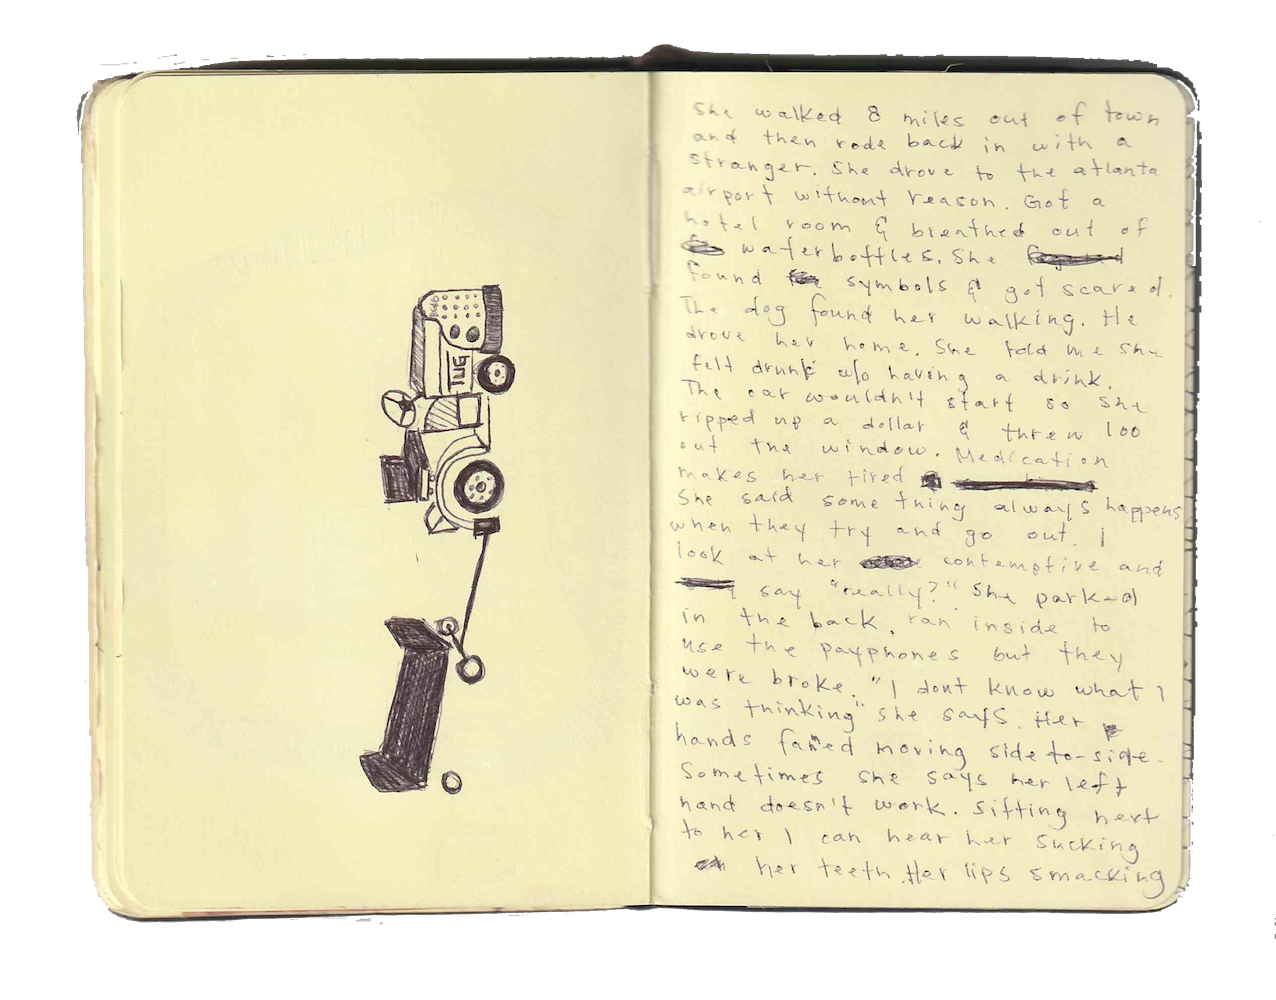 TUG
She walked 8 miles out of town
and then rode back in with a
stranger. She drove to the atlanta
airport without reason. Got a
hotel room & breathed out of
waterbottles. She
found symbols & got scared.
The dog found her walking. He
drove her home. She told me she
felt drunk w/o having a drink.
The car wouldn't start so she
ripped up a dollar & threw 100
out the window. Medication
makes her tired
She said something always happens
when they try and go out. I
look at her contemptive and
say "really?" She parked
in the back, ran inside to
use the payphones but they
were broke. "I dont know what I
was thinking" she says. Her
hands fanned moving side-to-side.
Sometimes she says her left
hand doesn't work. Sitting next
to her I can hear her sucking
her teeth. Her lips smacking